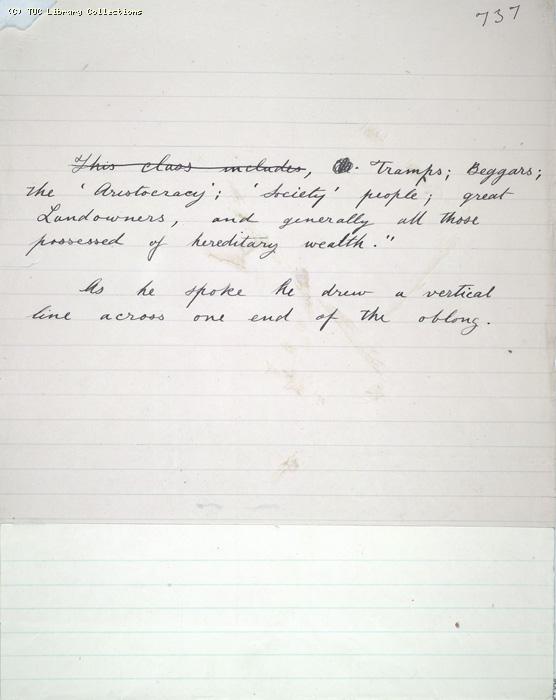 (C) TUC Library Collections
737
This class includes, . Tramps; Beggars;
the 'Aristocracy'; 'Society' people; great
Landowners, and generally all those
possessed of hereditary wealth."
As he spoke he drew a vertical
line across one end of the oblong.